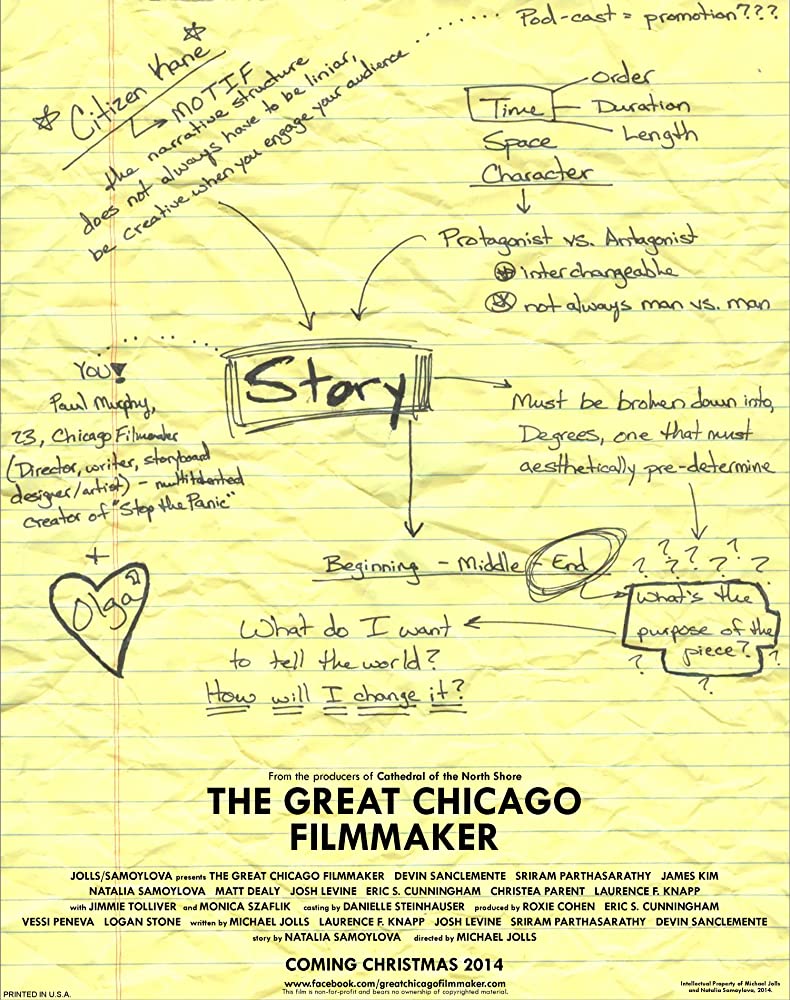 Pod-cast = promotion???
Citizen Kane
MOTIF
the narrative structure
does not always have to be liniar,
be creative when you engage your audience
Order
Time Duration
Length
Space
Character
Protagonist vs. Antagonist
interchangeable
not always man vs. man
YOU!
Paul Murphy,
23, Chicago Filmmaker
(Director, writer, storyboard
designer/artist) - multitalented
creator of "Stop the Panic"
+
Olga
Story
Must be broken down into,
Degrees, one that must
aesthetically pre-determine
Beginning - Middle - End
? ? ? ? ? ?
What's the
purpose of the
piece?
? ? ?
What do I want
to tell the world?
How will I change it?
From the producers of Cathedral of the North Shore
THE GREAT CHICAGO
FILMMAKER
JOLLS/SAMOYLOVA presents THE GREAT CHICAGO FILMMAKER DEVIN SANCLEMENTE SRIRAM PARTHASARATHY JAMES KIM
NATALIA SAMOYLOVA MATT DEALY JOSH LEVINE ERIC S. CUNNINGHAM CHRISTEA PARENT LAURENCE F. KNAPP
with JIMMIE TOLLIVER and MONICA SZAFLIK casting by DANIELLE STEINHAUSER produced by ROXIE COHEN ERIC S. CUNNINGHAM
VESSI PENEVA LOGAN STONE written by MICHAEL JOLLS LAURENCE F. KNAPP JOSH LEVINE SRIRAM PARTHASARATHY DEVIN SANCLEMENTE
story by NATALIA SAMOYLOVA directed by MICHAEL JOLLS
COMING CHRISTMAS 2014
www.facebook.com/greatchicagofilmmaker.com
This film is non-for-profit and bears no ownership of copyrighted material.
PRINTED IN U.S.A.
Intellectual Property of Michael Jolls
and Natalia Samoylova, 2014.